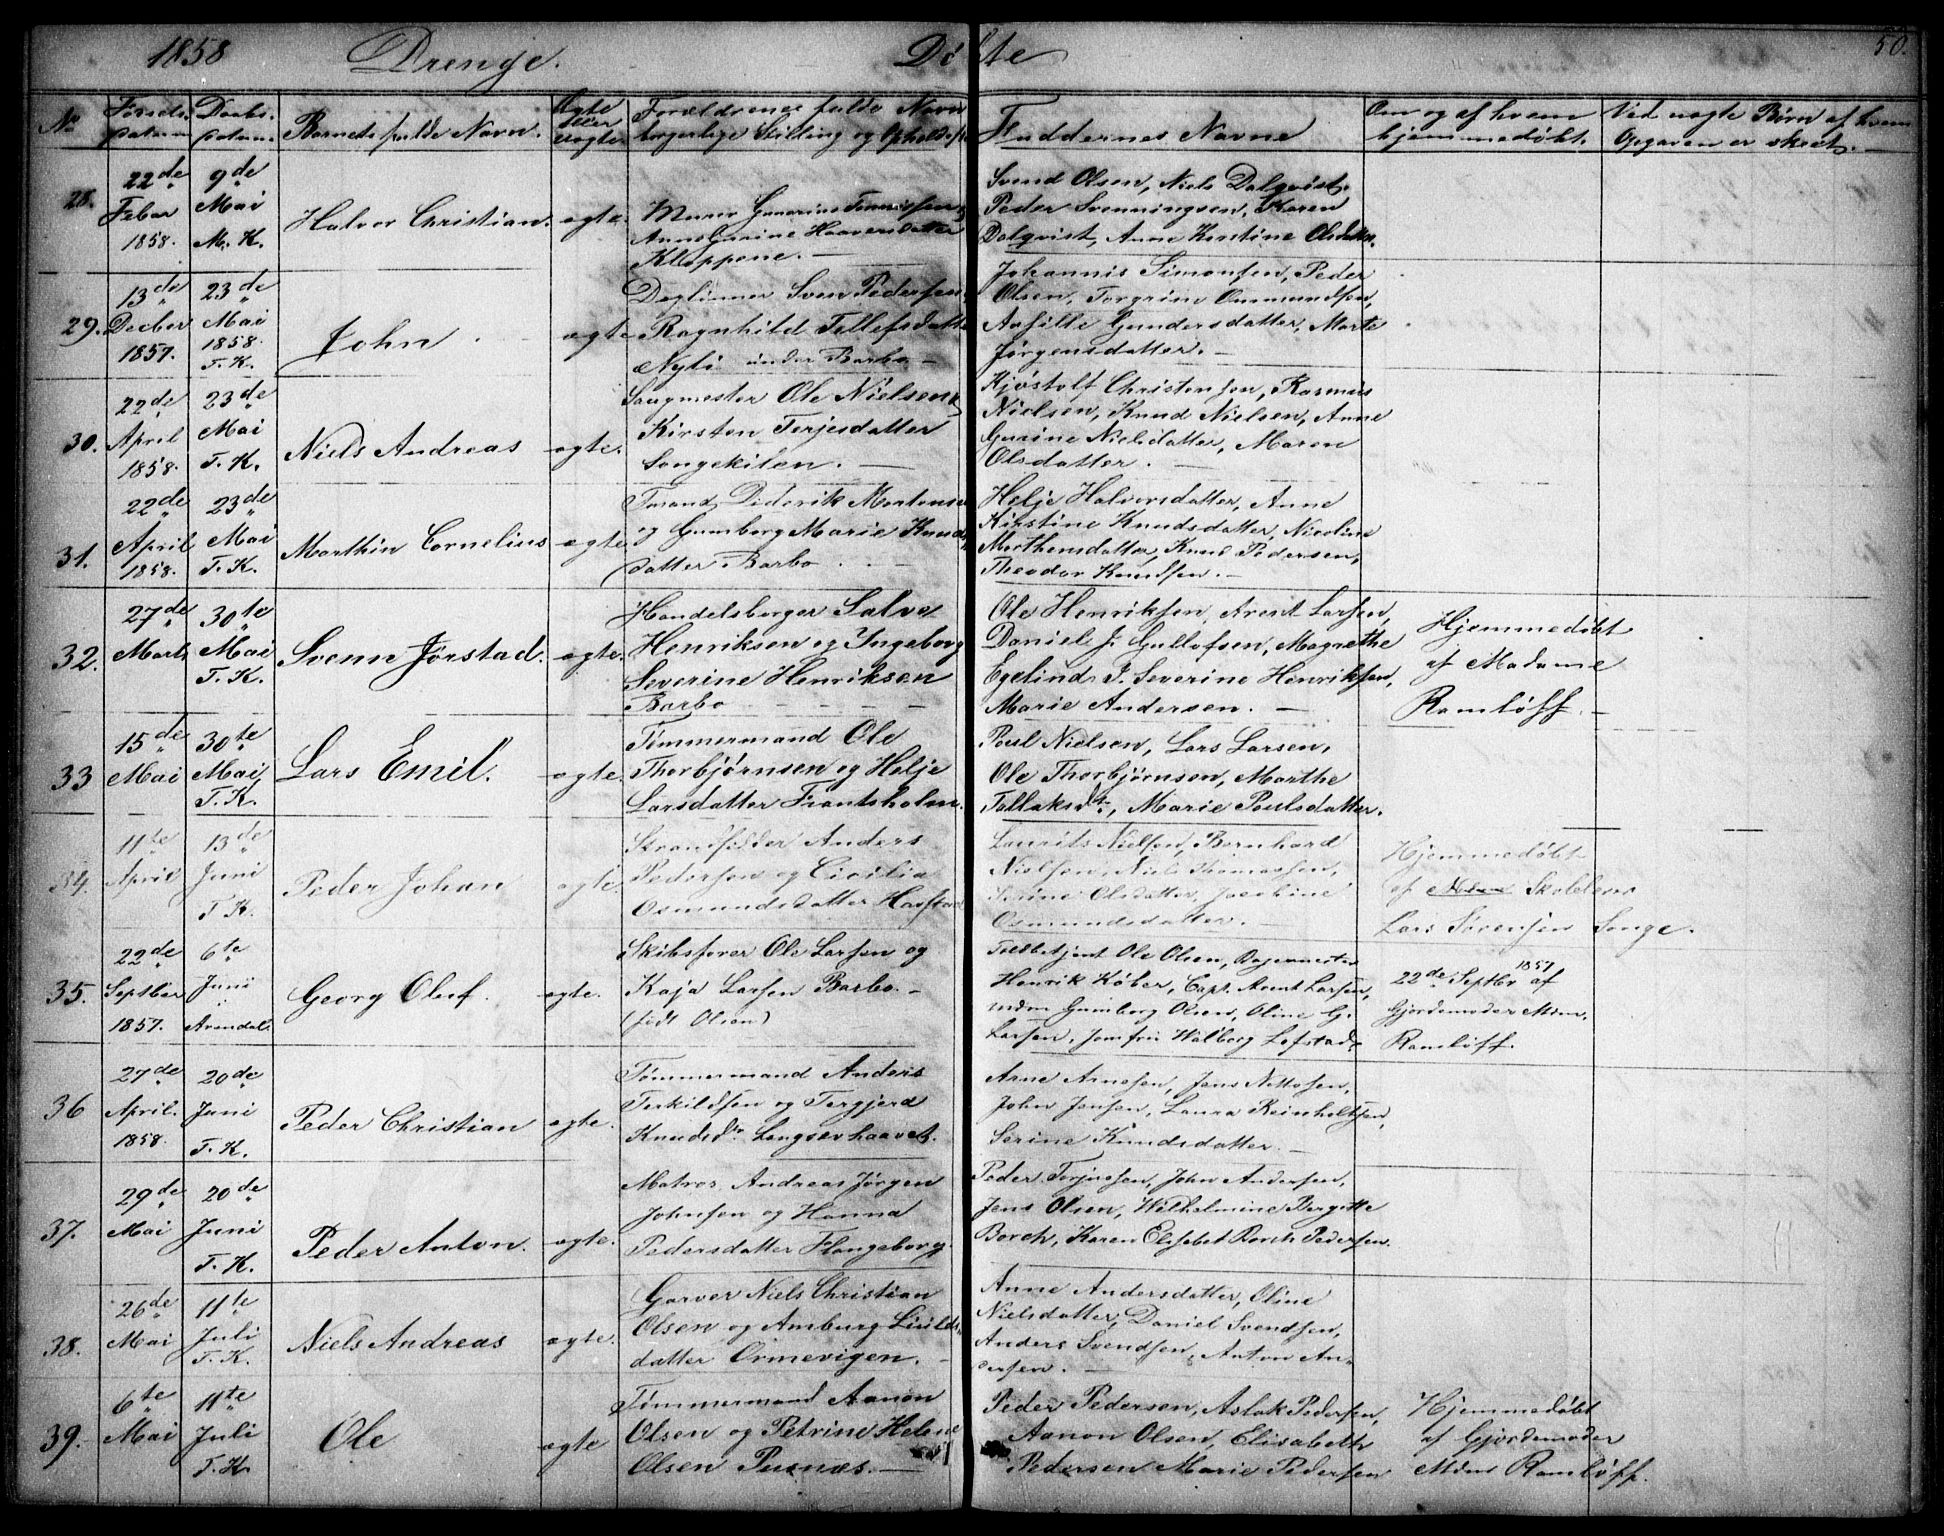 1858 Drenge. Døbte 50.
No Fødsels-datum Daabs-datum Barnets fulde Navn. Ægte eller uægte Forældrenes fulde Navn borgerlige Stilling og Opholdsst Faddernes Navne Om og af hvem hjemmedøbt. Ved uægte Børn af hvem Opgaven er skeet.
28. 22de Febar 1858. 9de Mai M. K. Halvor Christian. ægte.
Murer Gunerius
Anne Gurine Haaversdatter
Kloppene. —
Svend Olsen, Niels Dalqvist.
Peder Svenningsen, Karen
Dalqvist, Anne Kirstine Olsdatter.
29. 13de Decber 1857. 23de Mai 1858. T. K. John ægte
Daglønner Sven Pedersen
Ragnhild Tellefsdatt
Nyli under Barbo —
Johannis Simonsen, Peder
Olsen, Torgrim Ommundsen,
Gundersdatter, Marte
Jørgensdatter. —
30. 22de April 1858. 23de Mai T. K. Niels Andreas ægte.
Saugmester Ole Nielsen
Kirsten Terjesdatter
Songekilen. —
Kjøstolf Christensen, Rasmus
Nielsen, Knud Nielsen, Anne
Gurine Nielsdatter, Maren
Olsdatter. —
31. 22de April 1858. 23de Mai T. K. Marthin Cornelius ægte
Diderik Mortens
og Gunborg Marie Knud
datter Barbo . . —
Helje Halvorsdatter, Anne
Kirstine Knudsdatter, Nicoline
Morthensdatter, Knud Pedersen,
Theodor Knudsen. —
32. 27de Marts 30te Mai T. K. Svenn Jørstad. ægte.
Handelsborger Salve
Henriksen og Ingeborg
Severine Henriksen
Barbo — — — —
Ole Henriksen, Arent Larsen,
Daniel J. Gullofsen, Magrethe
Egelind, J. Severine Henriksen,
Marie Andersen. —
Hjemmedøbt
af Madame
Ramløff. —
33 15de Mai 30te Mai, T. K. Lars Emil. ægte.
Tømmermand Ole
Thorbjørnsen og Helje
Larsdatter Frantsholm.
Poul Nielsen, Lars Larsen,
Ole Thorbjørnsen, Marthe
Tellaksdtr, Marie Poulsdatter.
34. 11te April 13de Juni T. K. Peder Johan ægte.
Strandsidder Anders
Pedersen og Cicilia
Osmundsdatter
Laurits Nielsen, Bernhard
Nielsen, Niels Thomassen,
Serine Olsdatter, Jacobine
Osmundsdatter. —
Hjemmedøbt
af Skolelærer
Lars Sørensen Songe.
35. 22de Septber 1857. 6te Juni Arendal. Georg Oluf. ægte.
Skibsfører Ole Larsen og
Kaja Larsen Barbo. —
(født Olsen)
Toldbetjent Ole Olsen, Bagermester
Henrik Köber, Capt. Arent Larsen,
mdm Gunborg Olsen, Oline G.
Larsen, Jomfru Walborg Lofstad.
22de Septbr 1857 af
Gjordemoder Mdm.
Ramløff.
36 27de April. 1858. 20de Juni T. K. Peder Christian ægte.
Tømmermand Anders
Terkildsen og Tergjerd
Knudsdtr Langsævhaavet.
Arne Arnesen, Jens Nottosen,
John Jensen, Laura Reinholtsen,
Serine Knudsdatter. —
37. 29de Mai 20de Juni T. K. Peder Anton. ægte.
Matros Andreas Jørgen
Johnsen og Hanna
Pedersdatter Flangeborg.
Peder Terjusen, John Andersen,
Jens Olsen, Wilhelmine Bergitte
Borch, Karen Elisebet Borch Pedersen.
38. 26de Mai 11te Juli T. K. Niels Andreas ægte.
Garver Niels Christian
Olsen og Amburg Liulds-
datter Ormevigen. —
Anne Andersdatter, Oline
Nielsdatter, Daniel Svendsen,
Anders Svendsen, Anton An-
dersen. —
39. 6te Mai 11te Juli T. K. Ole ægte
Tømmermand Aanon
Olsen og Petrine Helene
Olsen Pusnæs. —
Peder Pedersen, Aslak Pedersen,
Aanon Olsen, Elisabeth
Pedersen Marie Pedersen
Hjemmedøbt
af Gjordemoder
Mdme Ramløff.